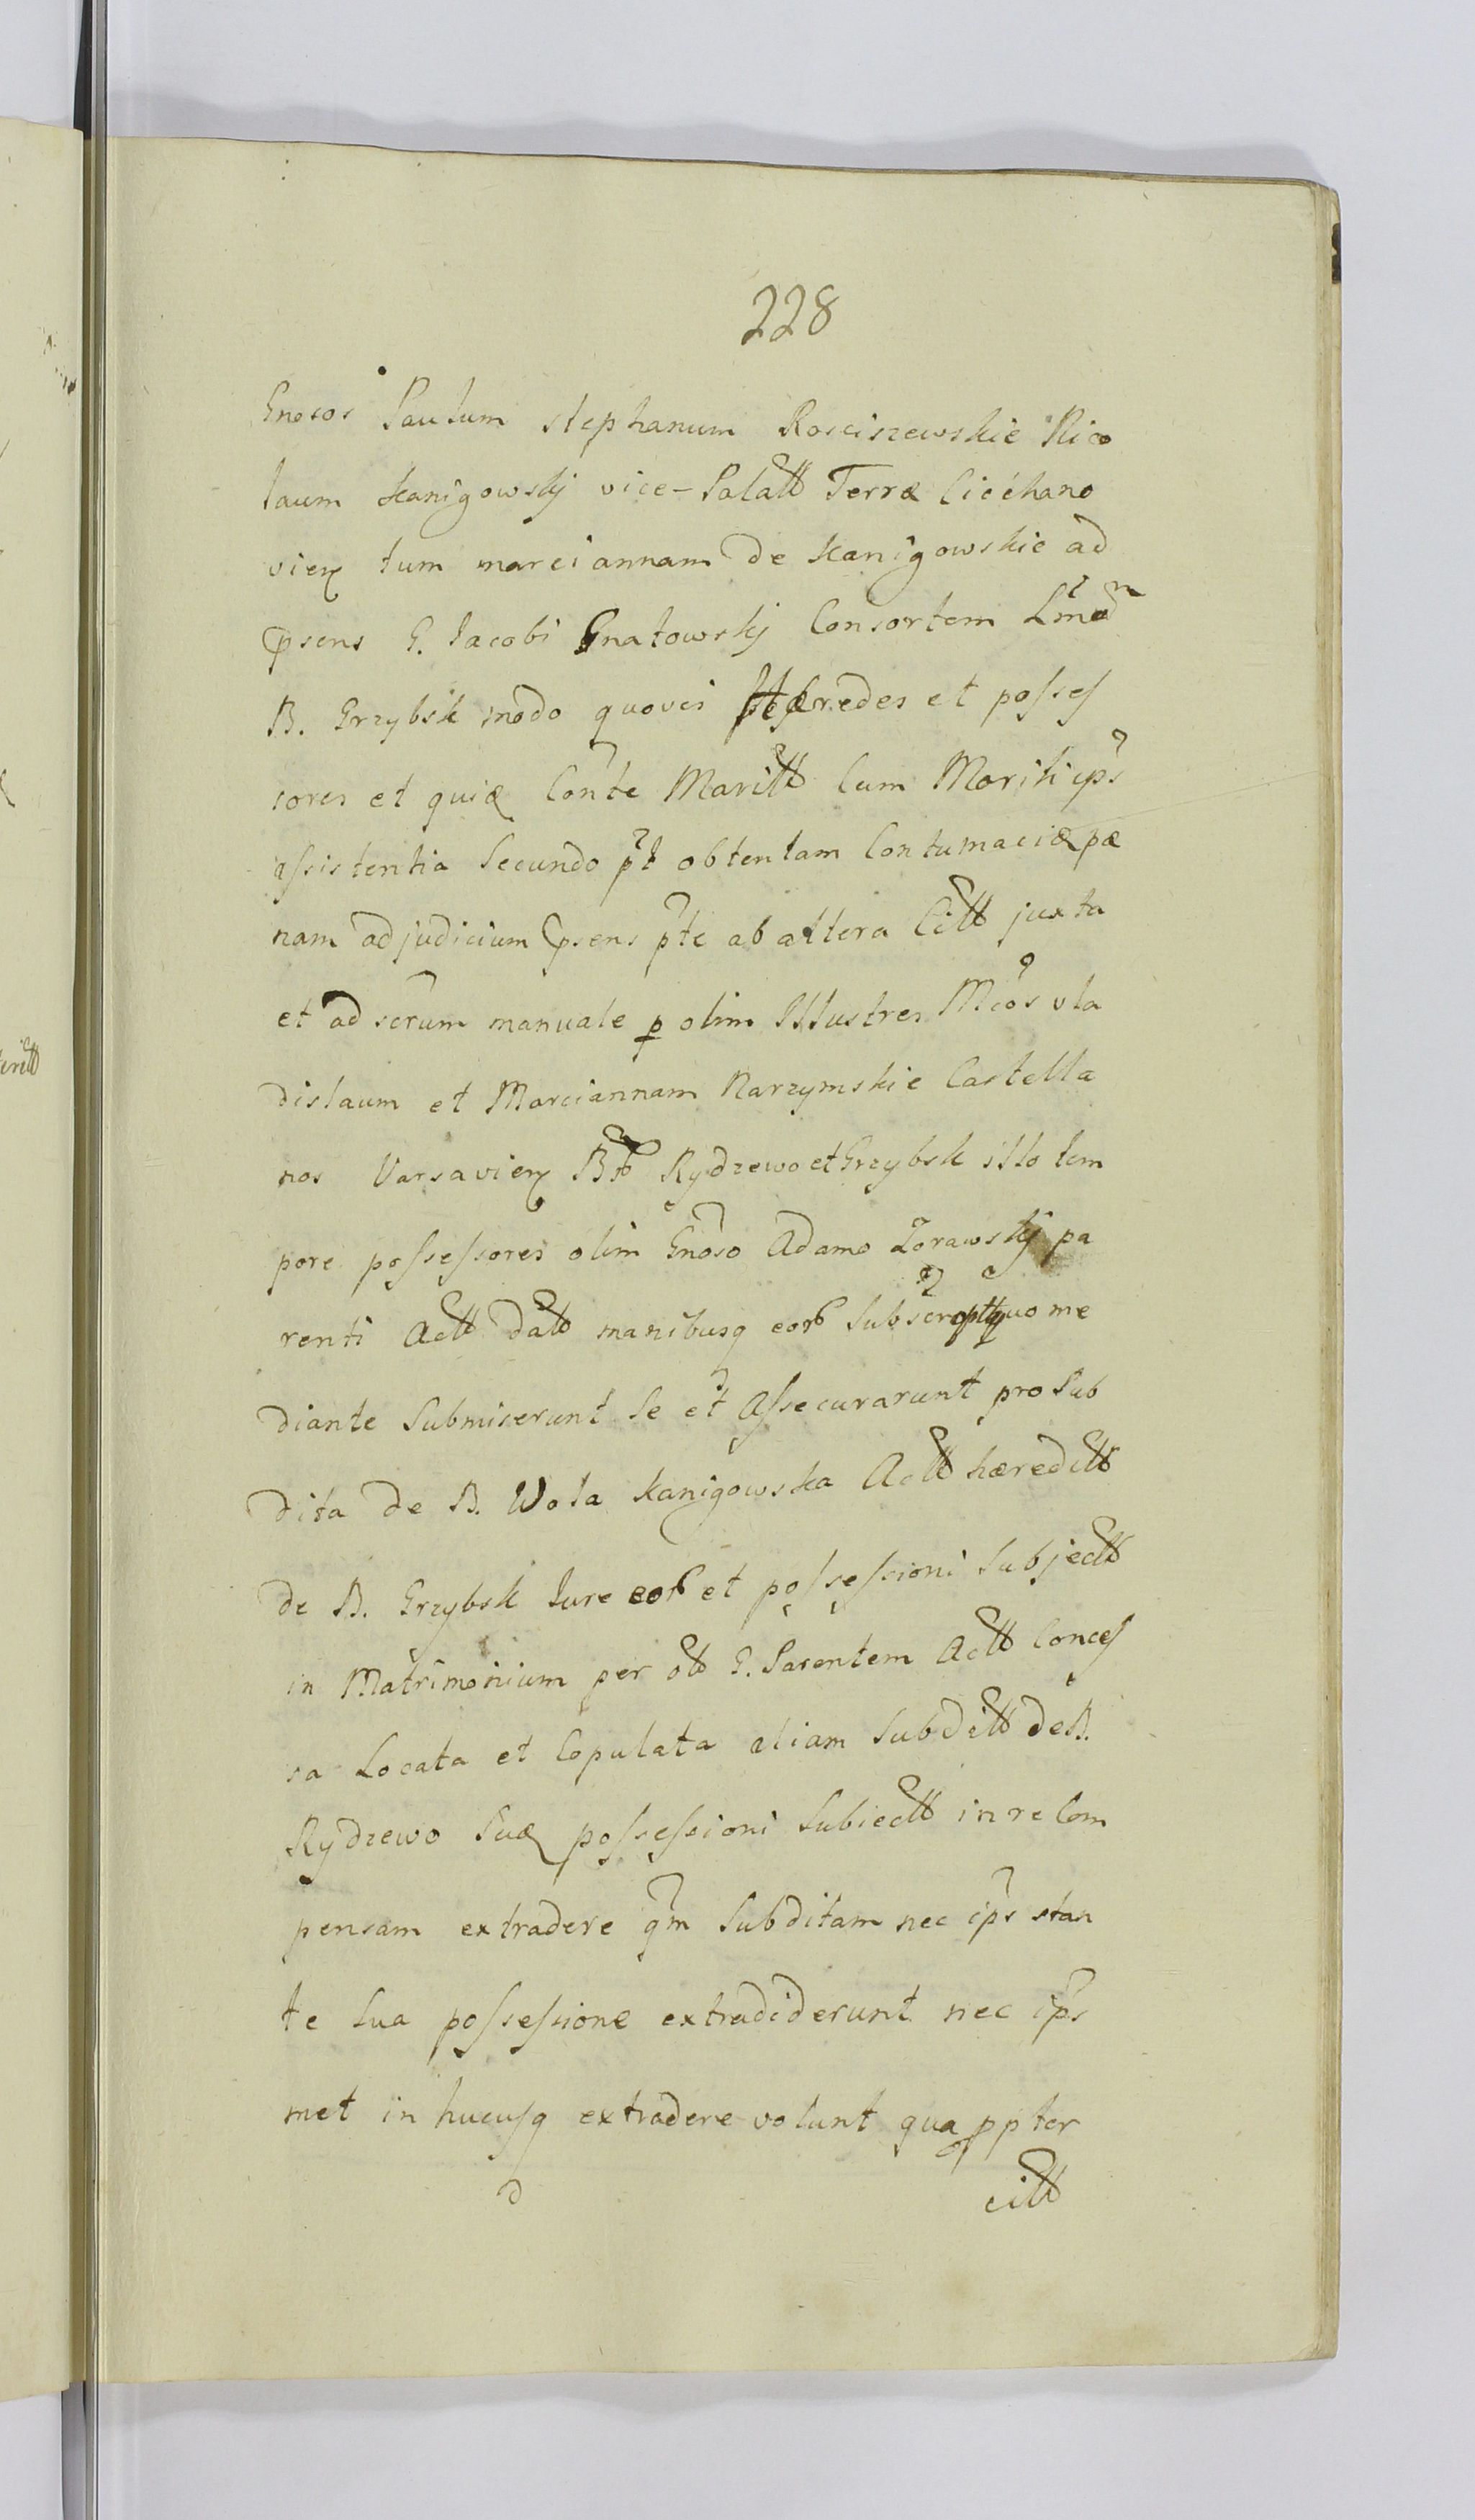 228
Gnosos Paulum Stephanum Rosciszewskie Nico
laum Kanigowskj vice-Palatt Terræ Ciechano
vien tum marciannam de Kanigowskie ad
psens G. Jacobi Gnatowskj Consortem
B. Grzybsk modo quovis Hæredes et posses
sores et quia Conte Maritt Cum Mariti ips
assistentia Secundo pt obtentam Contumaciæ pæ
nam ad judicium psens pte ab altera Citt juxta
et ad scrum manuale p olim Illustres Mcos Vla
dislaum et Marciannam Narzymskie Castella
nos Varsavien Rydzewo et Grzybsk illo tem
pore possessores olim Gnoso Adamo Zorawskj pa
renti Actt datt manibusq eor Subscrptt quo me
diante Submiserunt Se et Assecurarunt pro Sub
dita de B. Wola Kanigowska Actt hæreditt
de B. Grzybsk Jure eor et possessioni Subjectt
in Matrimonium per ott G. Parentem Actt Conces
sa Locata et Copulata aliam Subditt de B.
Rydzewo Suæ possessioni Subiectt in re Com
pensam extradere qm Subditam nec ips stan
te Sua possessione extradiderunt nec ips
met in hucusq extradere volunt qua ppter
citt